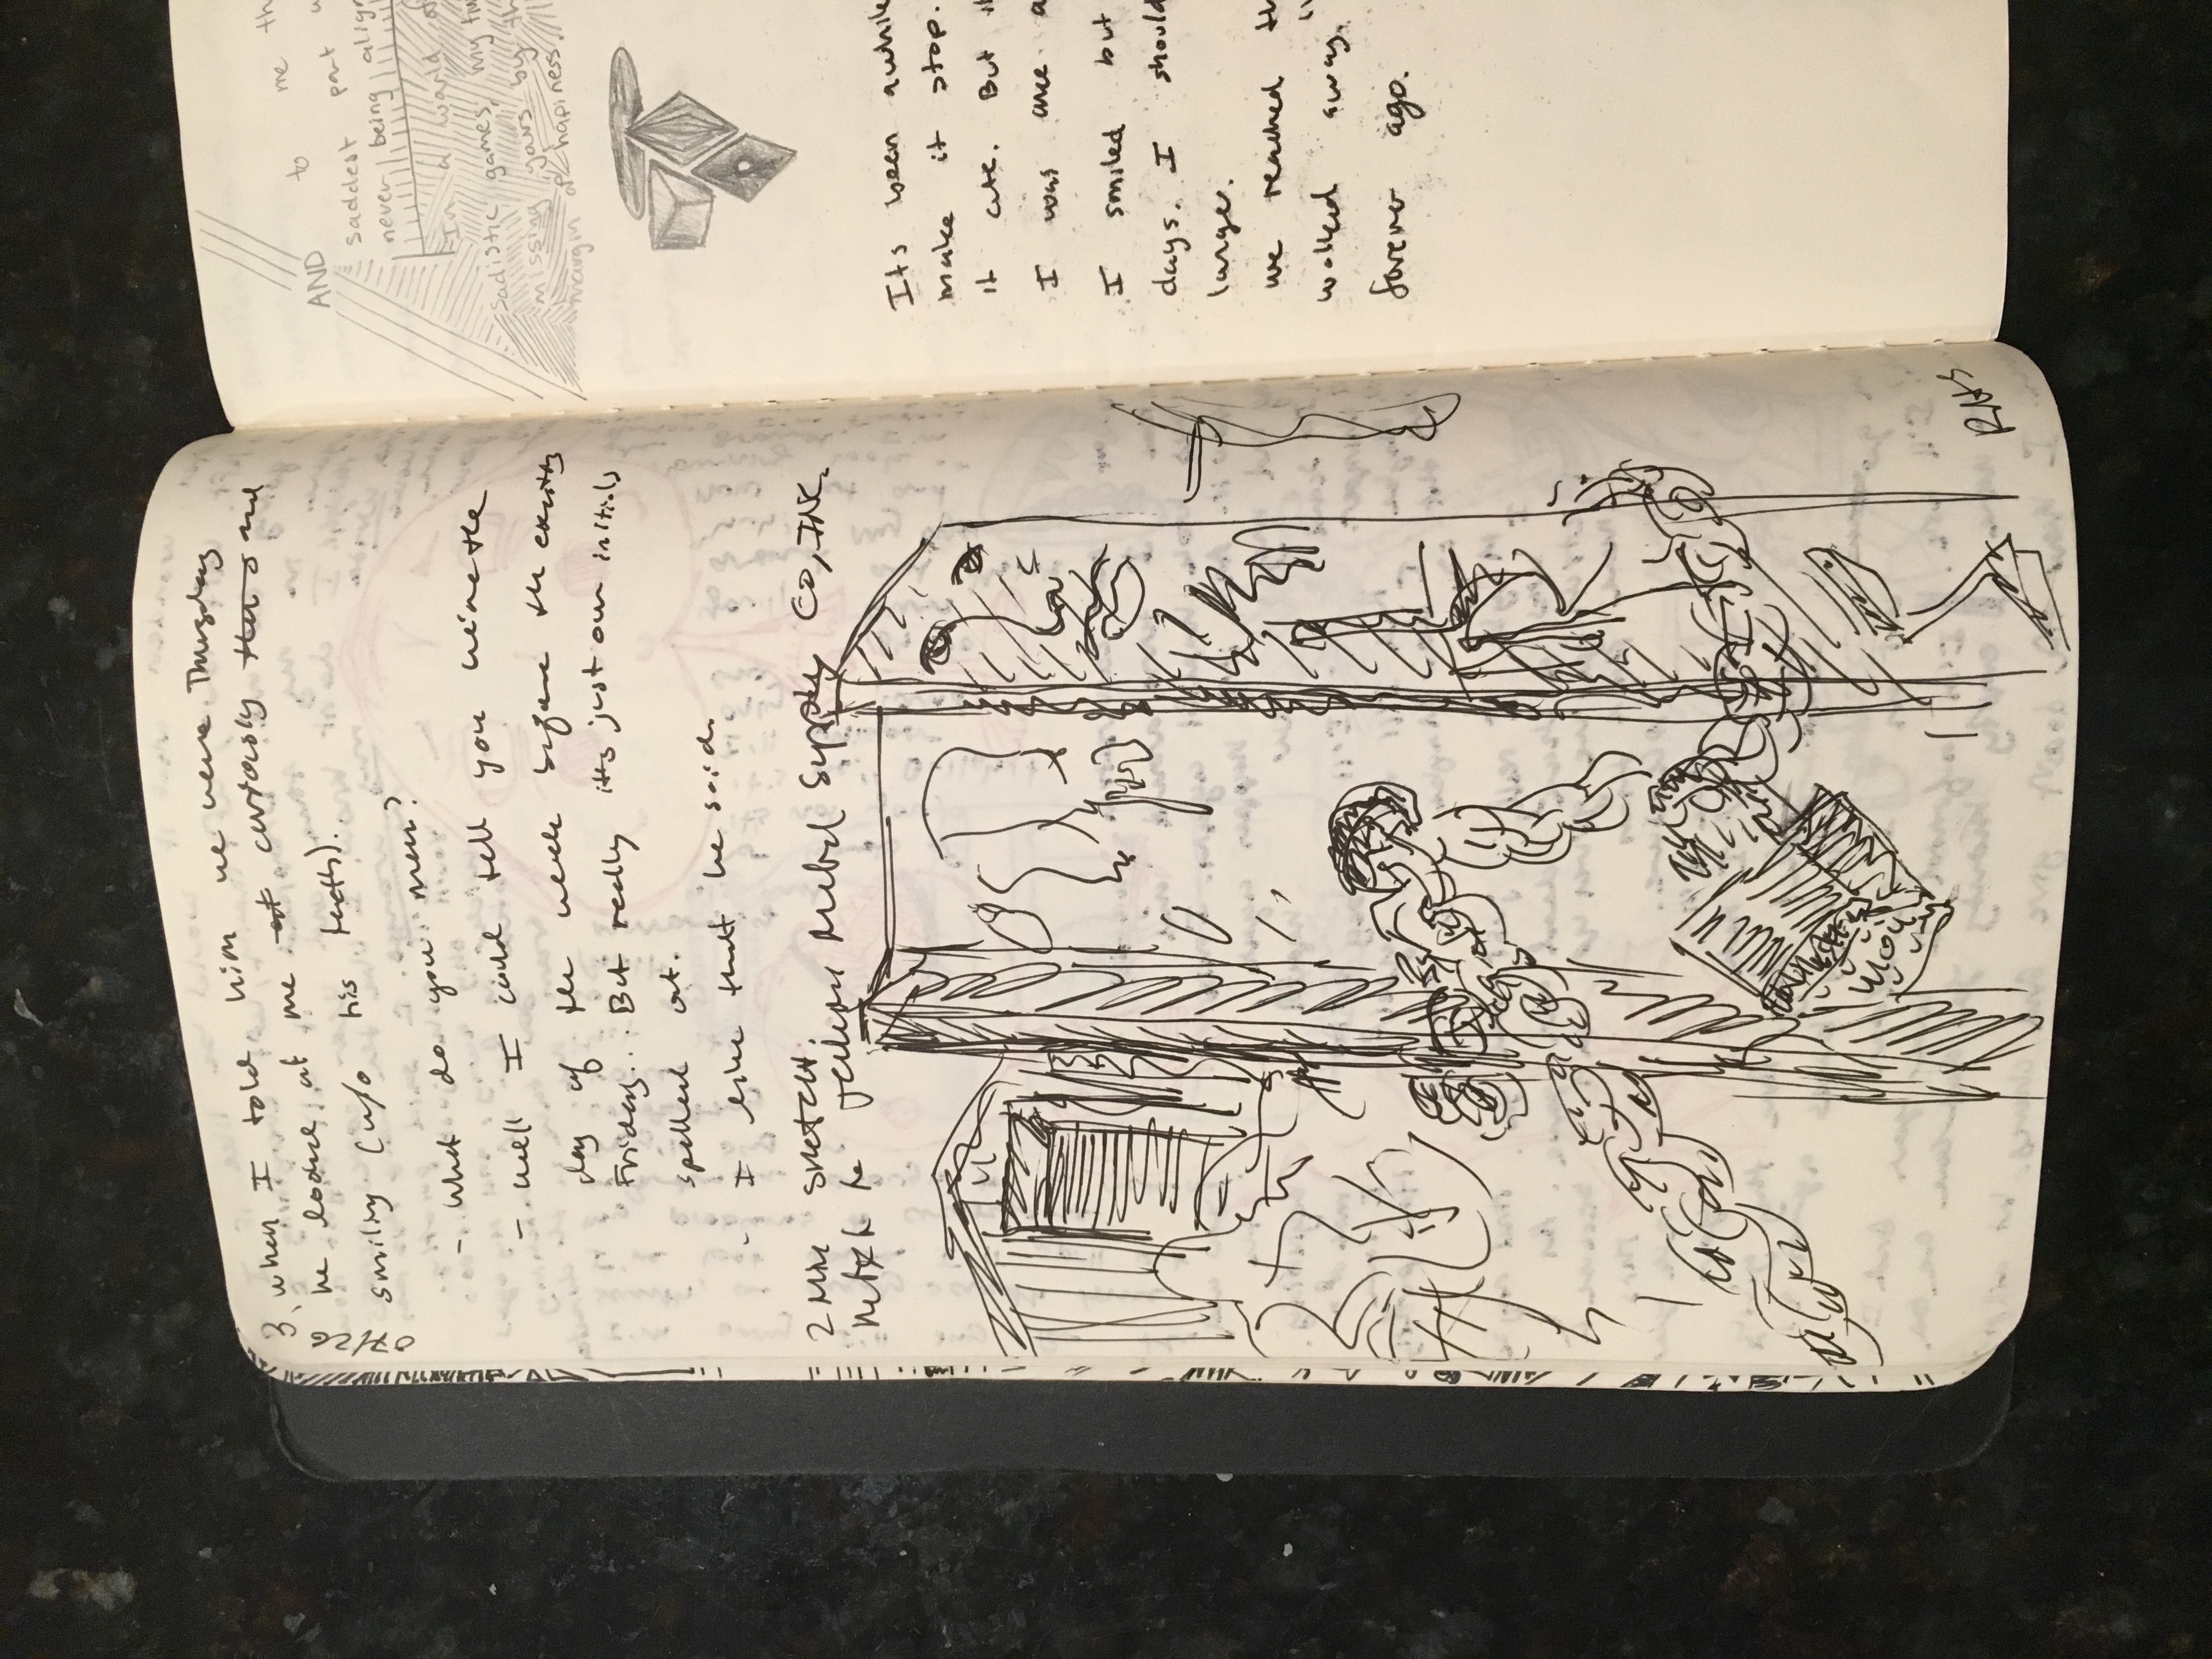 07/26
3, when I told him we were Thursday
he looked at me at curiously and
smiling (w/o his teeth).
- What do you mean?
- well I could tell you we're the
day of the week before the exciting
Friday... But really it's just our initials
spelled out.
- I like that he said.
2 Min SKETCH.
Metal Supply CO, INC.
RHS
AND to me th
saddest part
never being align
In a world of
sadistic games, my
missing years by th
margin of happiness.
Its been awhile
make it stop.
it cute. But it
I was once a
I smiled but
days. I should
larger.
we reached th
walked away. "
forever ago.